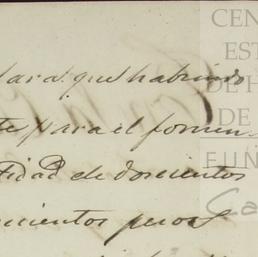 para que habiendo
para el fomen-
de doscientos
cientos pesos
CEN
EST
DE H
DE
F.U.N
Ca